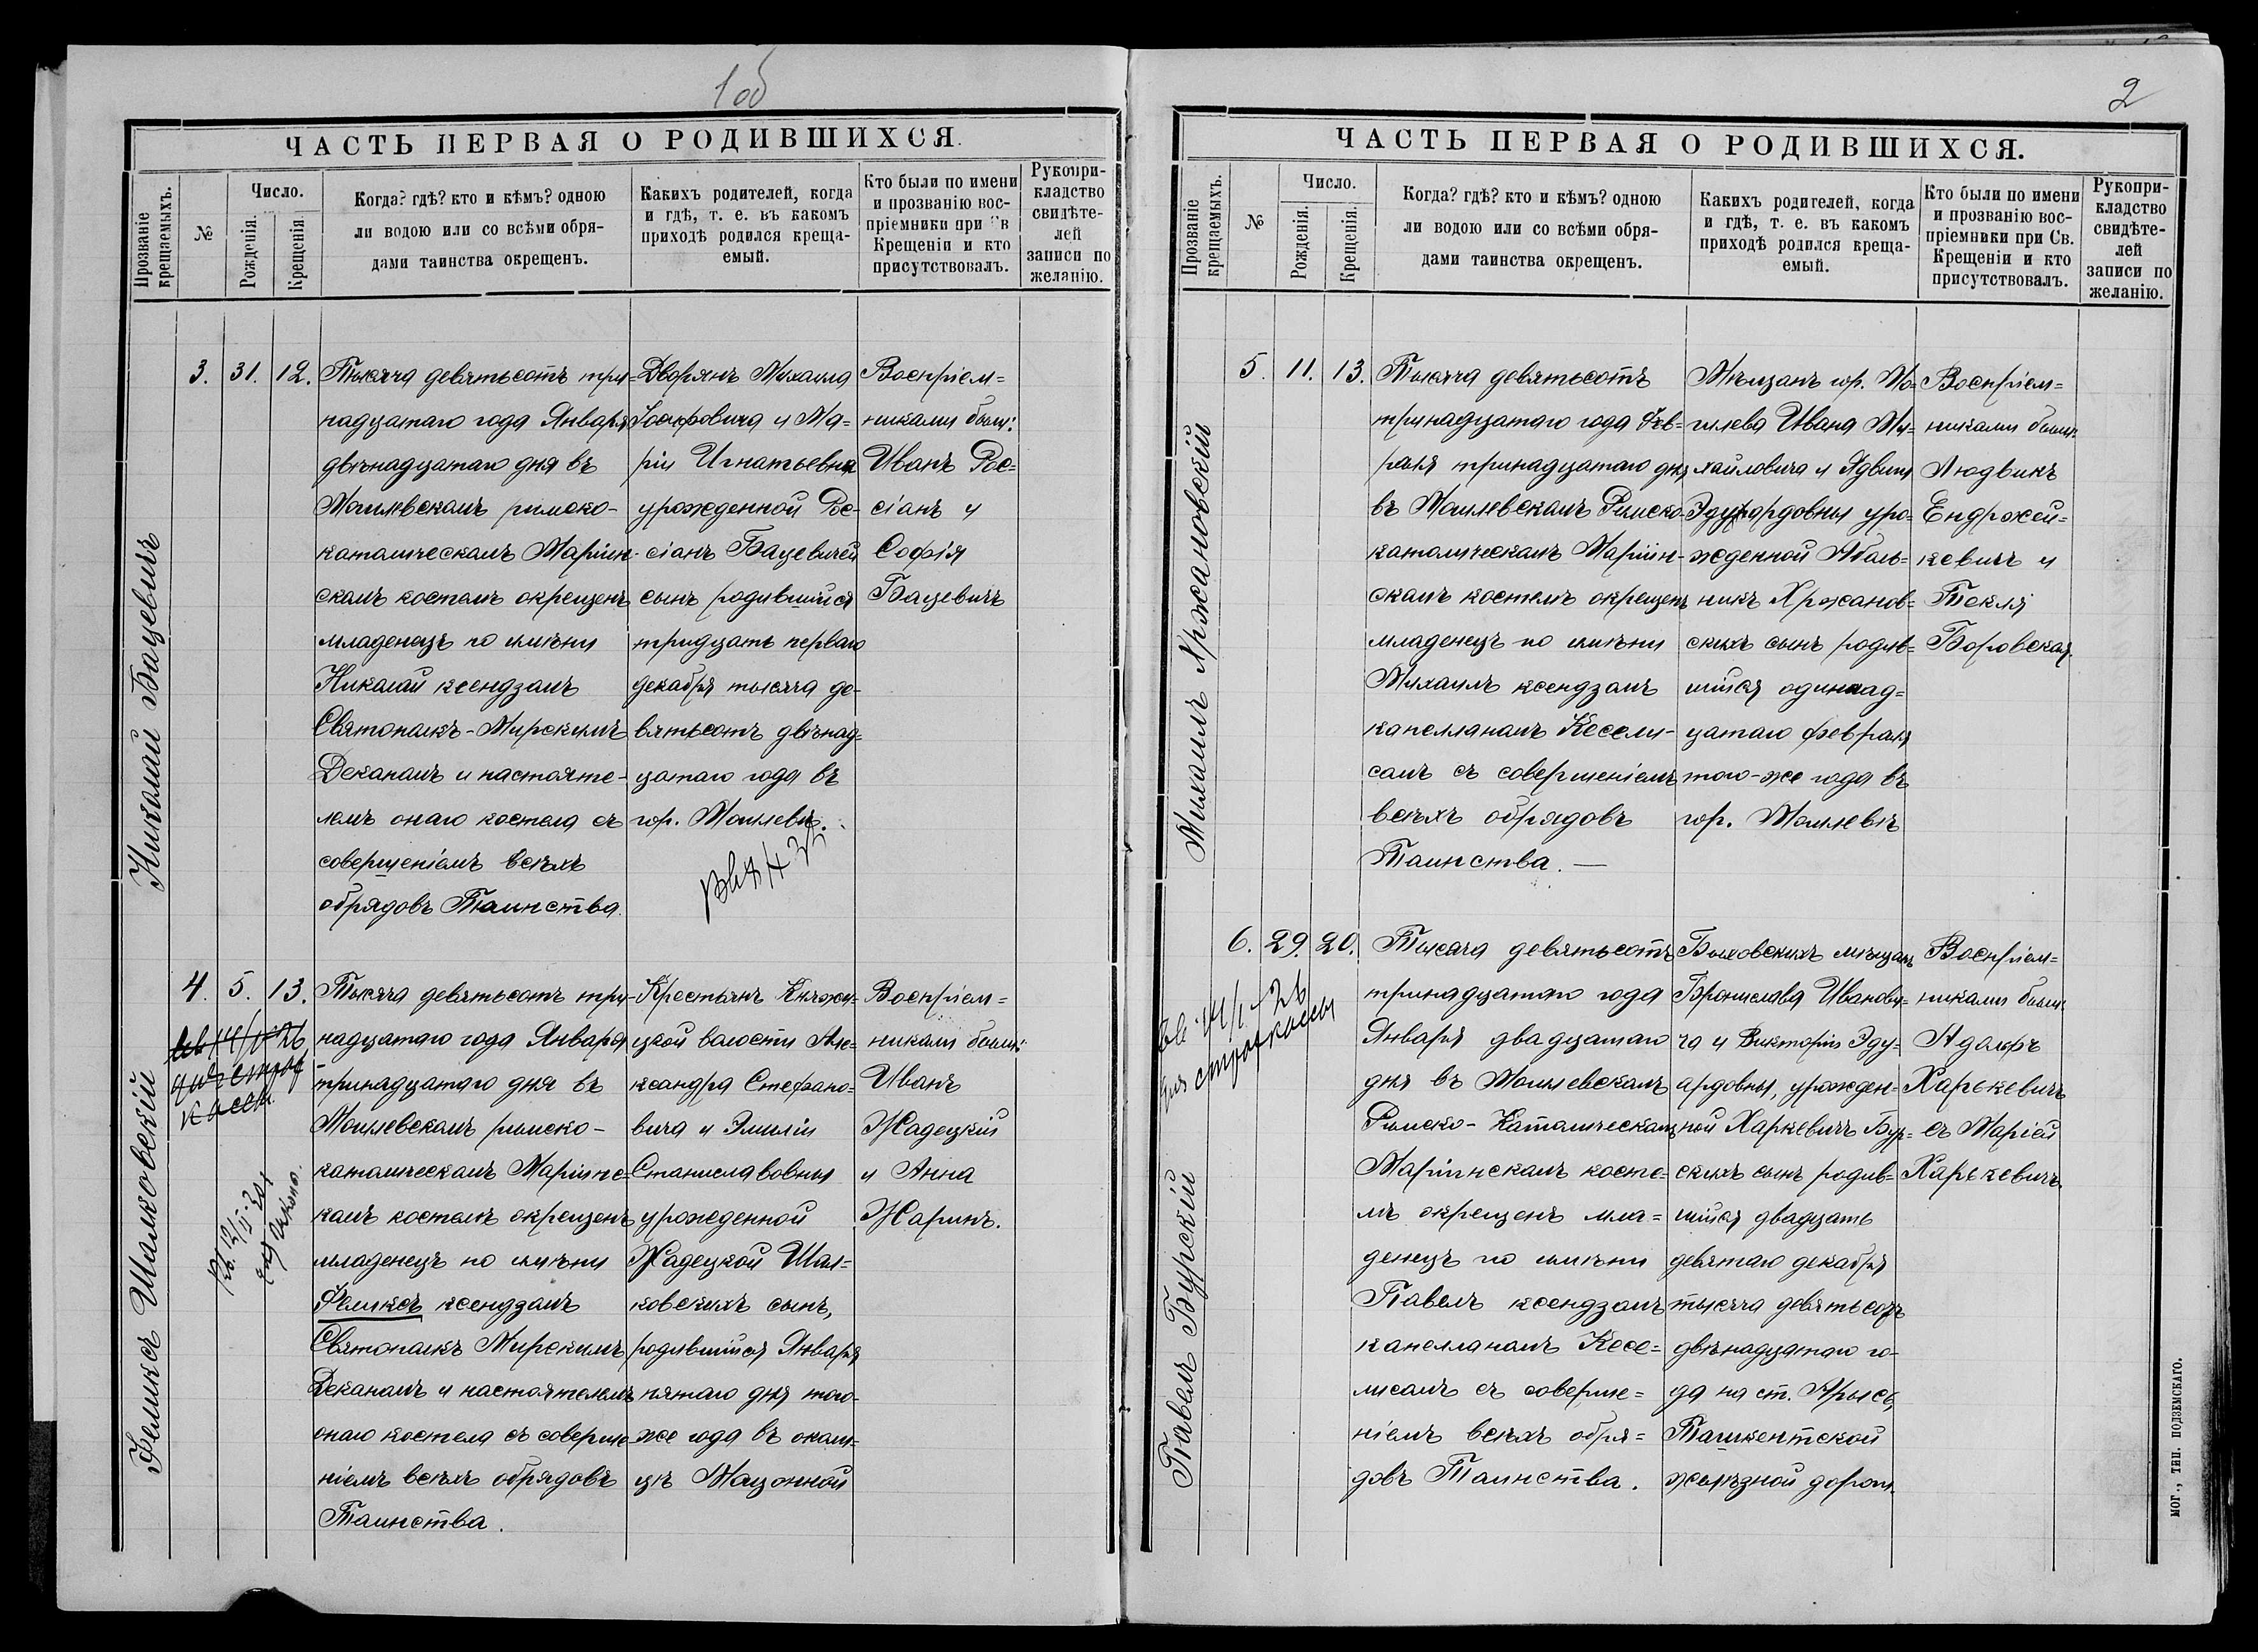 1об
ЧАСТЬ ПЕРВАЯ О РОДИВШИХСЯ.
Прозваніе крещаемыхъ.
№
Число.
Рожденія.
Крещенія.
Когда? гдѣ? кто и кѣмъ? одною
ли водою или со всѣми обря-
дами таинства окрещенъ.
Какихъ родителей, когда
и гдѣ, т. е. въ какомъ
приходѣ родился креща-
емый.
Кто были по имени
и прозванію вос-
пріемники при Св
Крещеніи и кто
присутствовалъ.
Рукопри-
кладство
свидѣте-
лей
записи по
желанію.
Николай Бацевичъ
3.
31.
12.
Тысяча девятьсотъ три-
надцатаго года Января
двѣнадцатаго дня въ
Могилевскомъ римско-
католическомъ Маріин-
скомъ костелѣ окрещенъ
младенецъ по имени
Николай ксендзомъ
Святополкъ-Мирскимъ
Деканомъ и настояте-
лемъ онаго костела съ
совершеніемъ всѣхъ
обрядовъ Таинства.
Дворянъ Михаила
Іосифовича и Ма-
ріи Игнатьевны
урожденной Рос-
сіанъ Бацевичей
сынъ родившійся
тридцать перваго
декабря тысяча де-
вятьсотъ двѣнад-
цатаго года въ
гор. Могилевѣ.
Воспріем=
никами были:
Иванъ Рос=
сіанъ и
Софія
Бацевичъ
Феликсъ Шалковскій
4.
5.
13.
Тысяча девятьсотъ три-
надцатаго года Января
тринадцатаго дня въ
Могилевскомъ римско-
католическомъ Маріинс-
комъ костелѣ окрещенъ
младенецъ по имени
Феликсъ ксендзомъ
Святополкъ Мирскимъ
Деканомъ и настоятелемъ
онаго костела съ соверше-
ніемъ всѣхъ обрядовъ
Таинства.
Крестьянъ Княжи-
цкой волости Але-
ксандра Стефано-
вича и Эмиліи
Станиславовны
урожденной
Жадецкой Шал-
ковскихъ сынъ,
родившійся Января
пятаго дня того-
же года въ околи-
цѣ Мацонной
Воспріем=
никами были:
Иванъ
Жадецкій
и Анна
Жаринъ.
2
ЧАСТЬ ПЕРВАЯ О РОДИВШИХСЯ.
Прозваніе крещаемыхъ.
№
Число.
Рожденія.
Крещенія.
Когда? гдѣ? кто и кѣмъ? одною
ли водою или со всѣми обря-
дами таинства окрещенъ.
Какихъ родителей, когда
и гдѣ, т. е. въ какомъ
приходѣ родился креща-
емый.
Кто были по имени
и прозванію вос-
пріемники при Св.
Крещеніи и кто
присутствовалъ.
Рукопри-
кладство
свидѣте-
лей
записи по
желанію.
Михаилъ Хржановскій
5.
11.
13.
Тысяча девятьсотъ
тринадцатаго года Фев-
раля тринадцатаго дня
въ Могилевскомъ Римско-
католическомъ Маріин-
скомъ костелѣ окрещенъ
младенецъ по имени
Михаилъ ксендзомъ
капелланомъ Кесели-
сомъ съ совершеніемъ
всѣхъ обрядовъ
Таинства. —
Мѣщанъ гор. Мо-
гилева Ивана Ми-
хайловича и Ядвиги
Эдуардовны уро-
жденной Яголь-
никъ Хржанов-
скихъ сынъ родив-
шійся одиннад-
цатаго февраля
того-же года въ
гор. Могилевѣ
Воспріем=
никами были:
Людвикъ
Ендржей=
кевичъ и
Текля
Боровская.
Павелъ Бурскій
6.
29.
20.
Тысяча девятьсотъ
тринадцатаго года
Января двадцатаго
дня въ Могилевскомъ
Римско-Католическомъ
Маріинскомъ косте-
лѣ окрещенъ мла=
денецъ по имени
Павелъ ксендзомъ
капелланомъ Кесе=
лисомъ съ соверше=
ніемъ всѣхъ обря=
довъ Таинства.
Быховскихъ мѣщанъ
Бронислава Иванови=
ча и Викторіи Эду-
ардовны, урожден-
ной Харкевичъ Бур-
скихъ сынъ родив-
шійся двадцать
девятаго декабря
тысяча девятьсотъ
двѣнадцатаго го-
да на ст. Арысь,
Ташкентской
желѣзной дороги.
Воспріем=
никами были:
Адольфъ
Харькевичъ
съ Маріей
Харькевичъ.
МОГ., ТИП. ПОДЗЕМСКАГО.